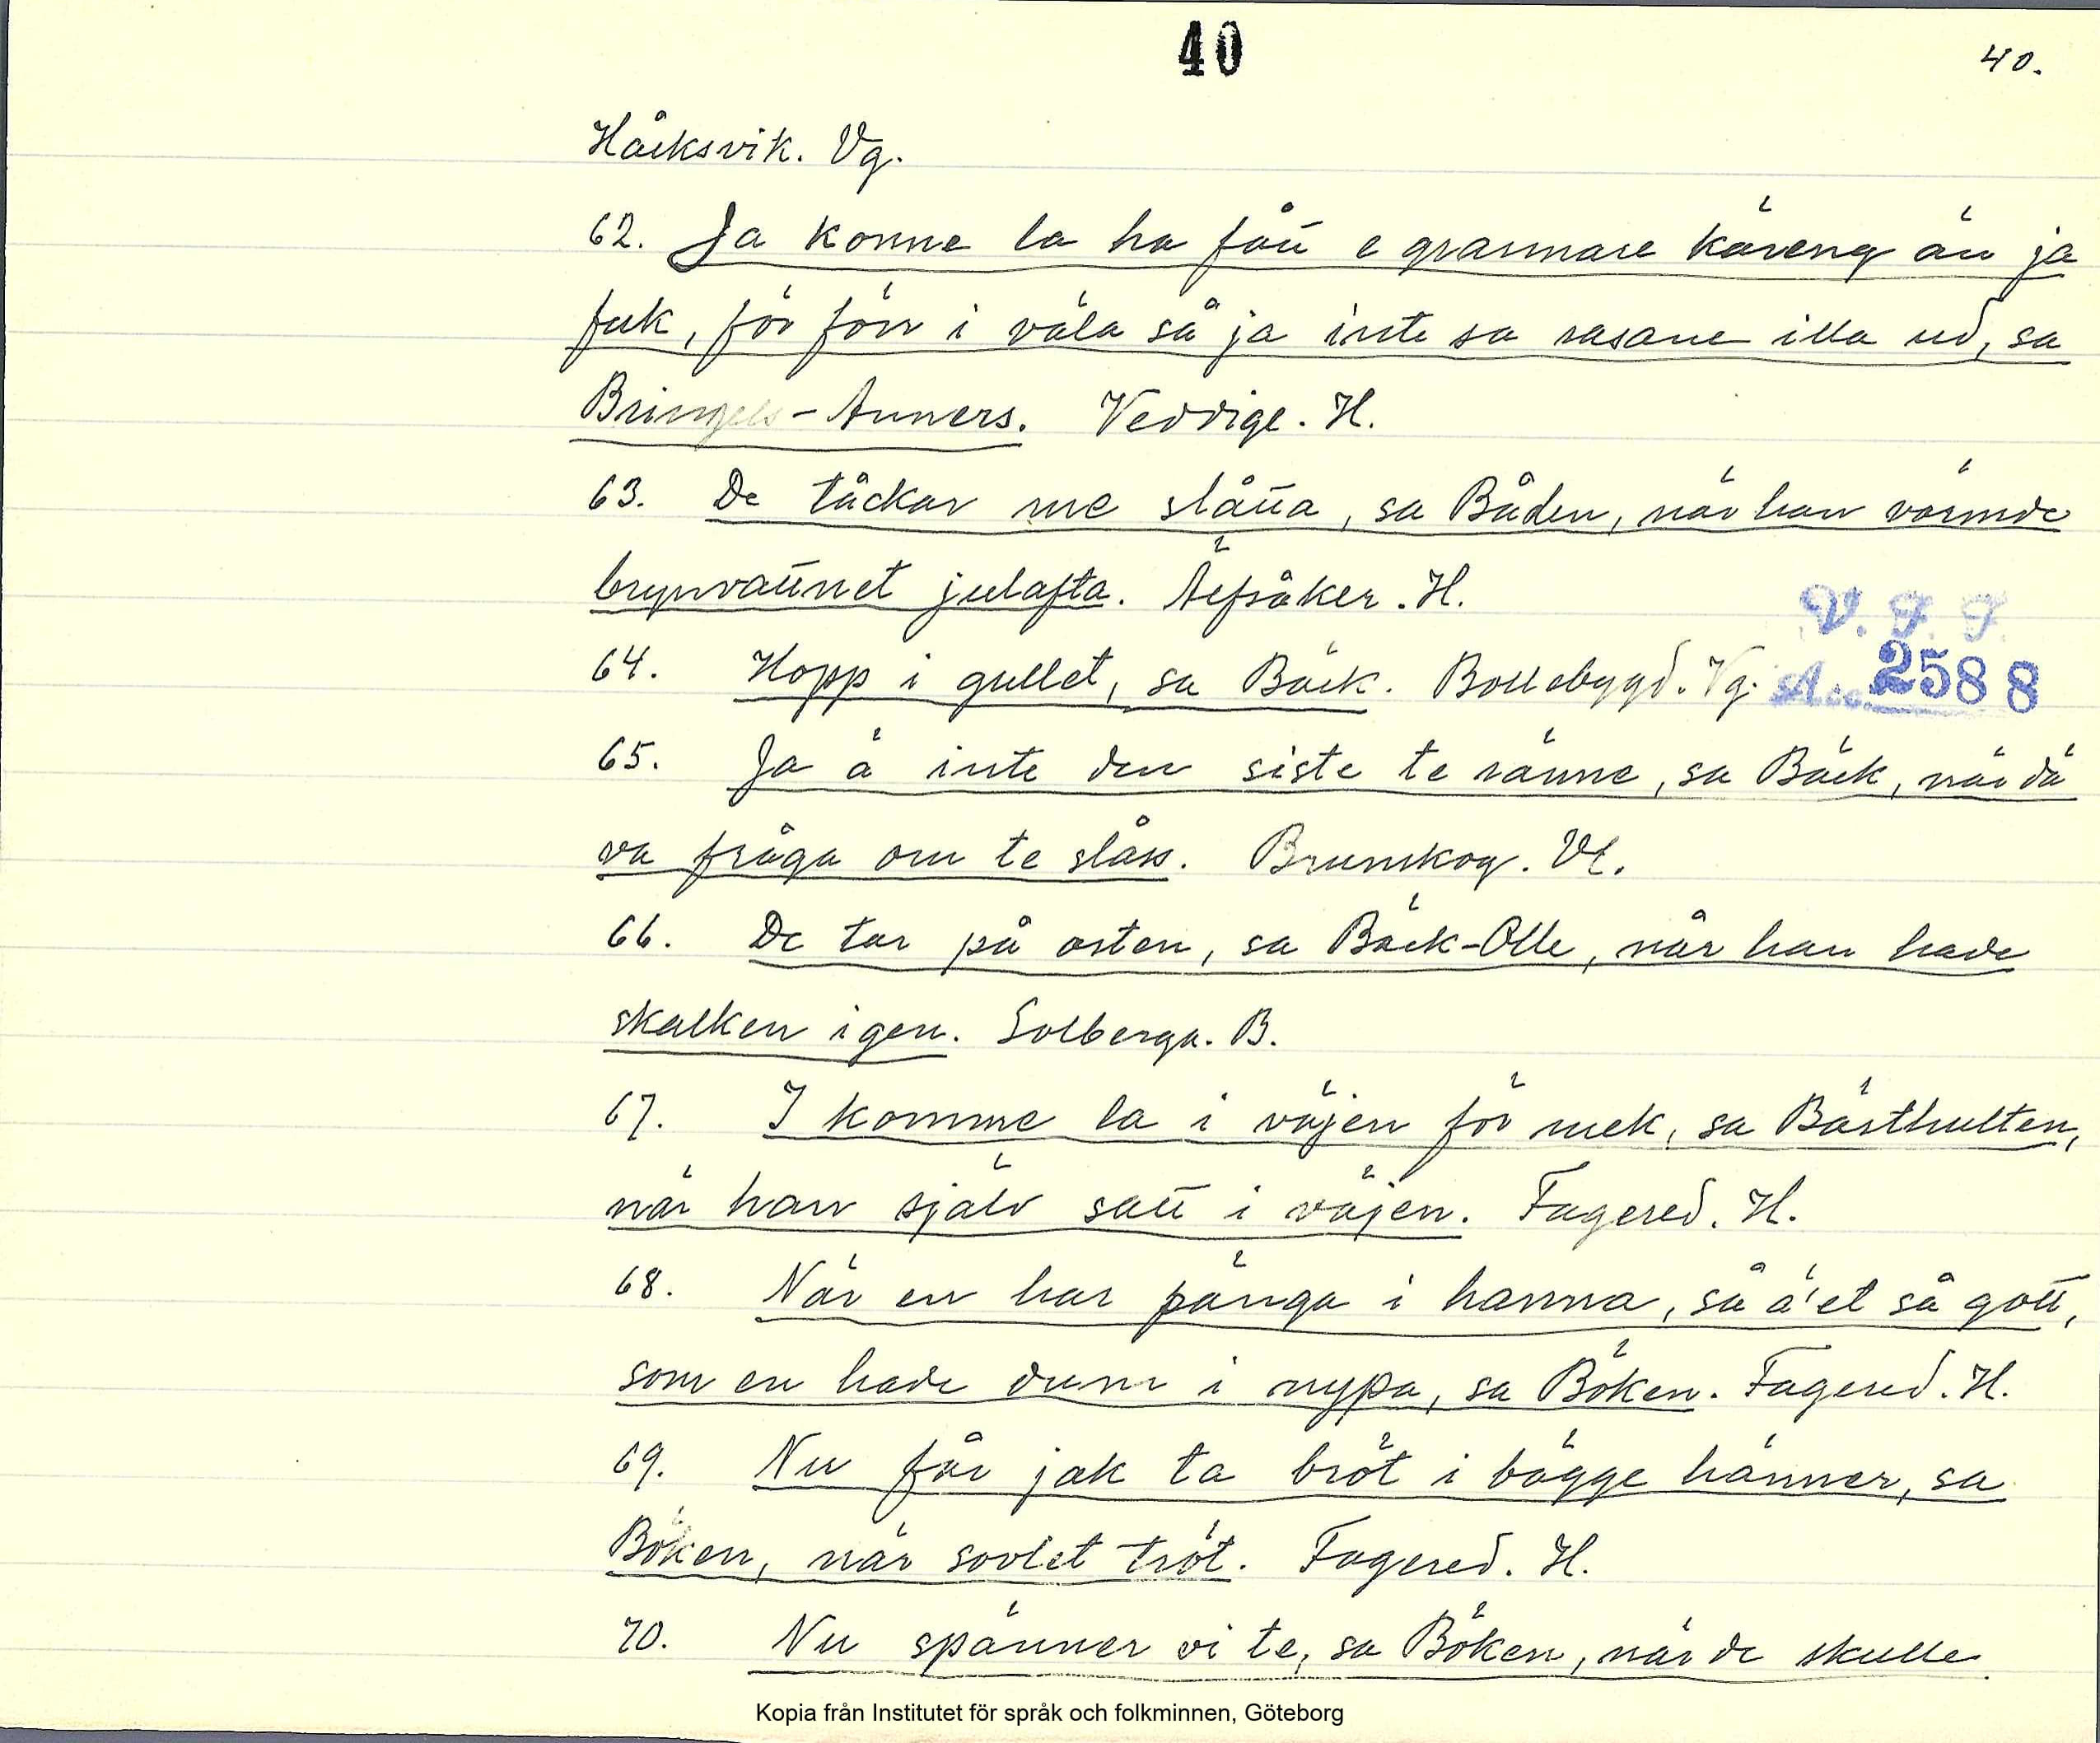 40
40.
Håcksvik. Vg.
62. Ja konne la ha fått e grannare käreng än ja
fek, för förr i väla så ja inte sa rasane illa ud, sa
Bringels-Anners. Veddige. H.
63. De täckar me slåtta, sa Båden, när han värmde
brynvattnet julafta. Älfsåker. H.
64. Hopp i gullet, sa Bäck. Bollebygd. Vg.
V. F. F.
Acc. 2588
65. Ja ä inte den siste te ränne, sa Bäck, när dä
va fråga om te slåss. Brunskog. Vl.
66. De tar på osten, sa Bäck-Olle, når han hade
skalken igen. Solberga. B.
67. I komme la i väjen för mek, sa Bästhulten,
när han själv satt i väjen. Fagered. H.
68. När en har pänga i hanna, så ä'et så gott,
som en hade dum i nypa, sa Böken. Fagered. H.
69. Nu får jak ta bröt i bägge hänner, sa
Böken, när sovlet tröt. Fagered. H.
70. Nu spänner vi te, sa Böken, när de skulle
Kopia från Institutet för språk och folkminnen, Göteborg